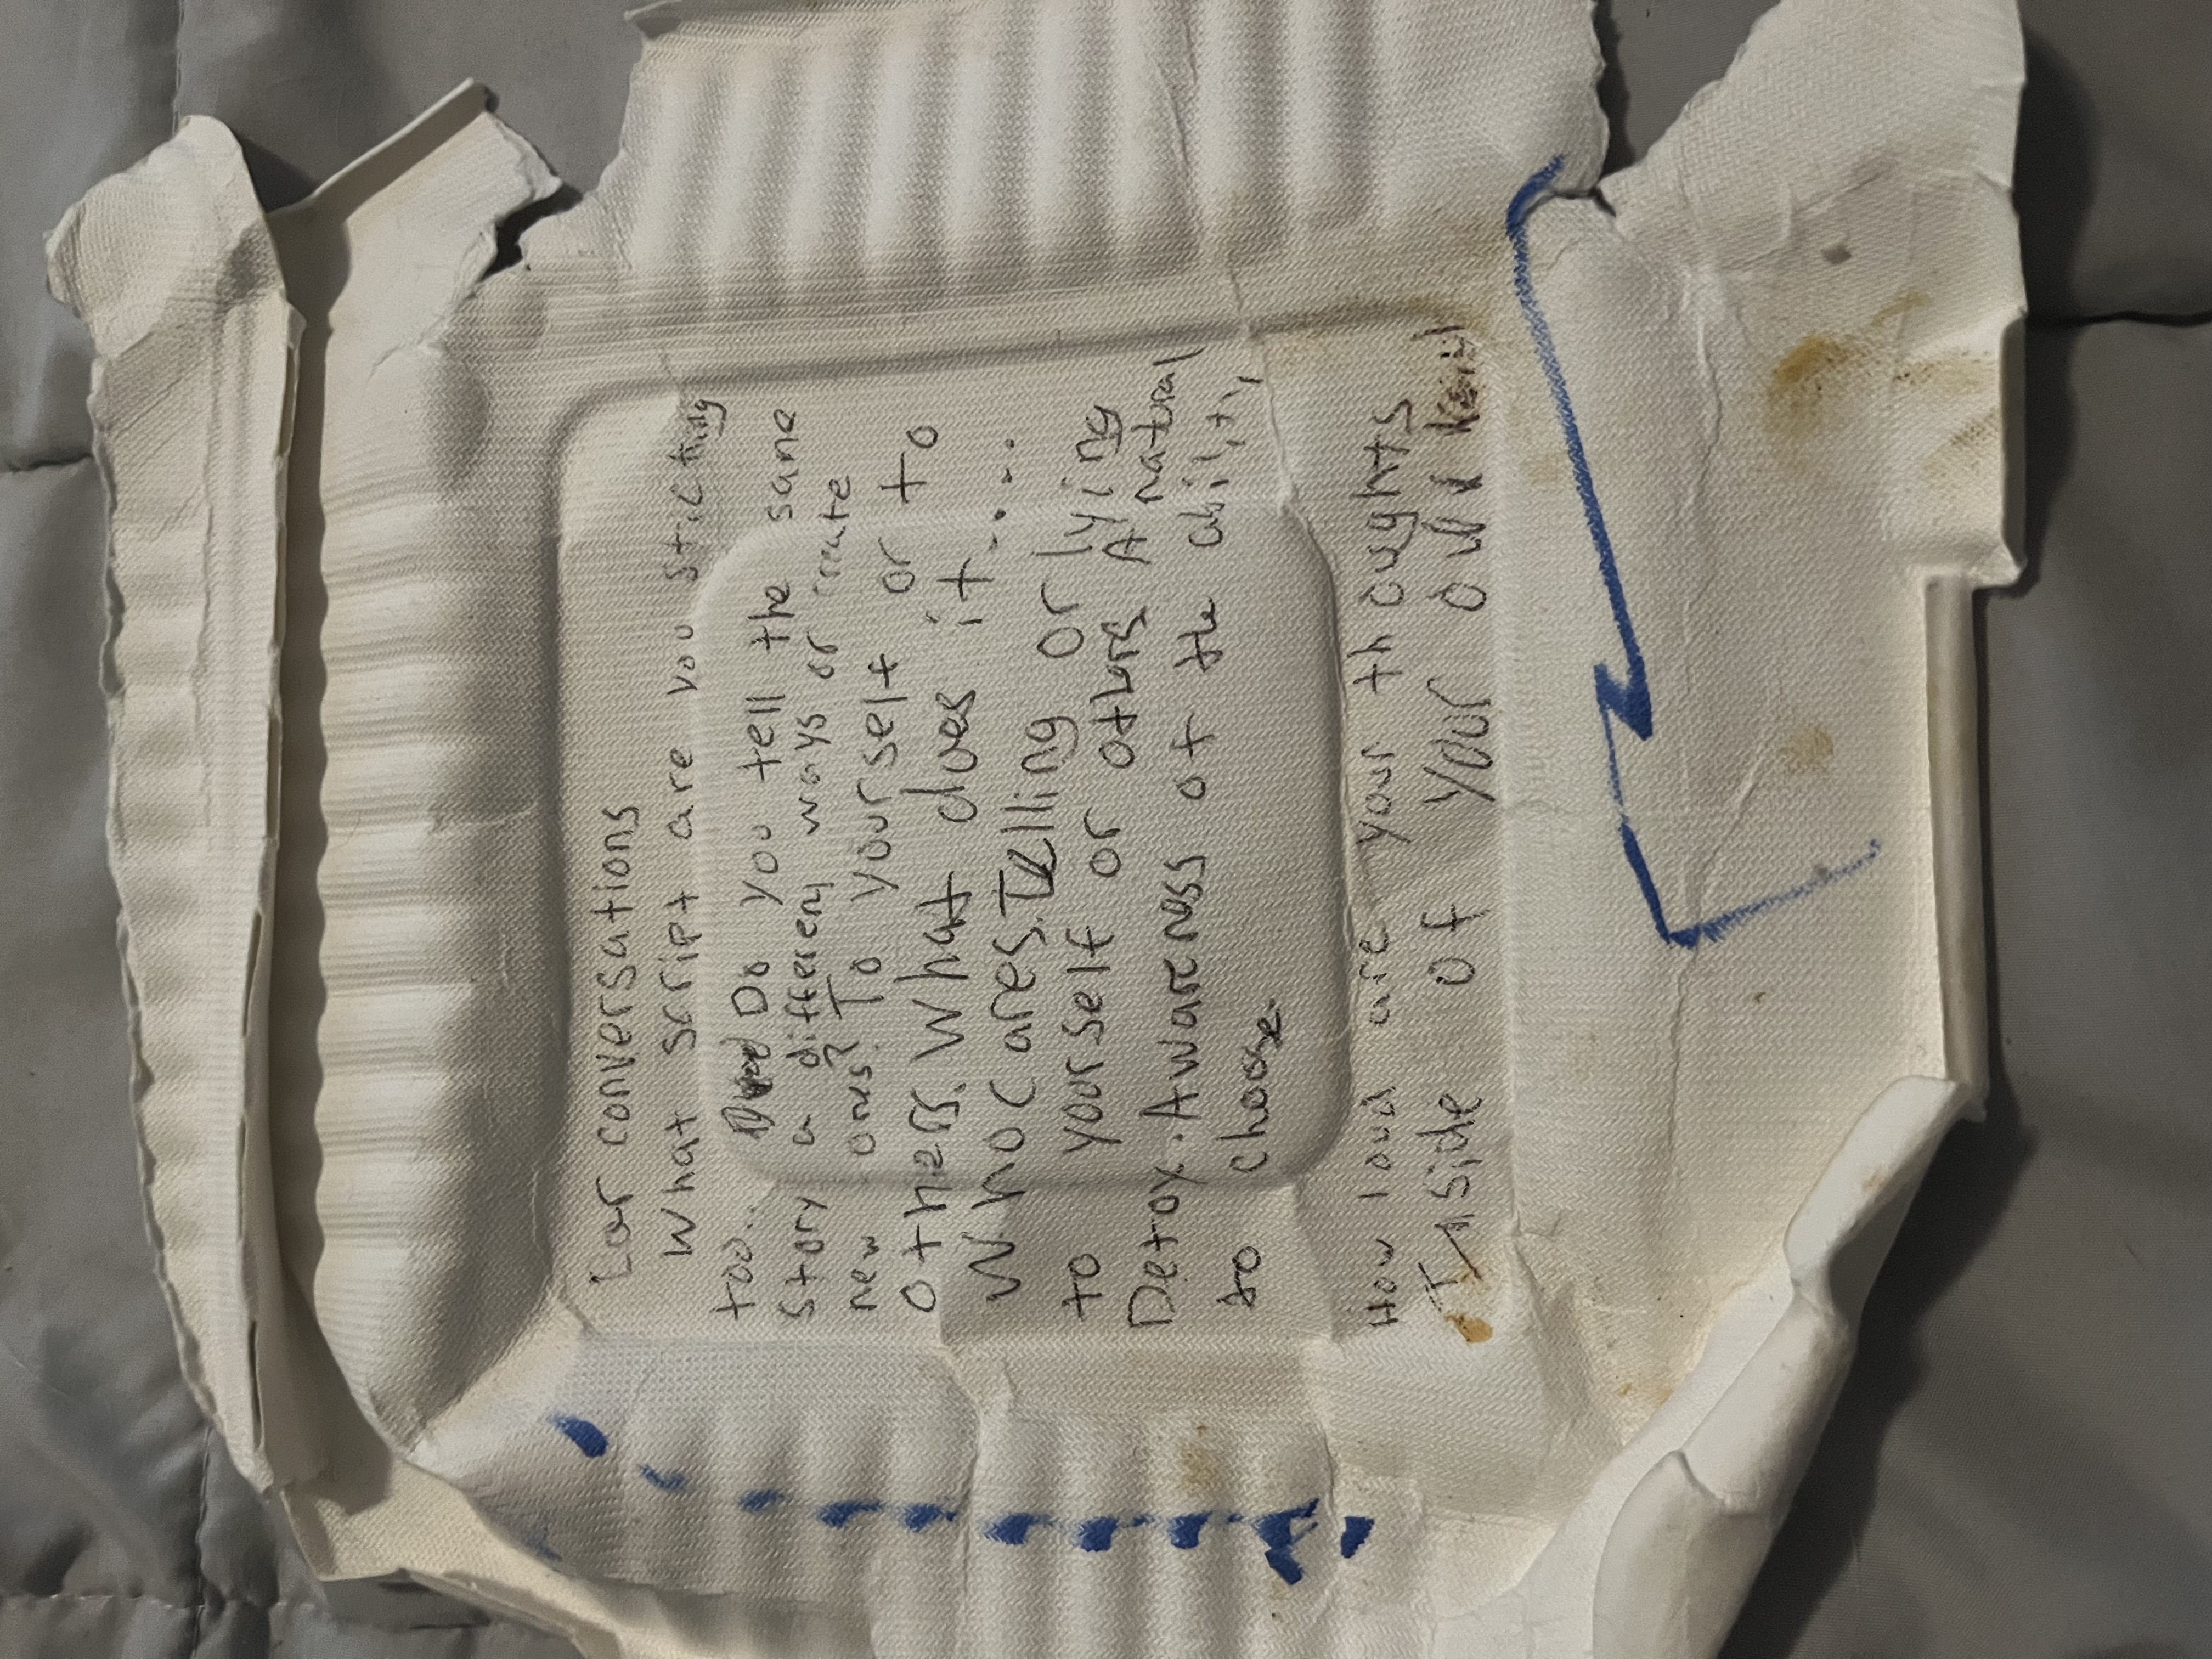 Car conversations
What script are you sticking
too.. Do you tell the same
Story a different ways or create
new ones? To yourself or to
others. What does it....
Who cares. Telling or lying
to yourself or others A natural
Detox. Awareness of the ability
to choose.
How loud are your thoughts
Inside of your own